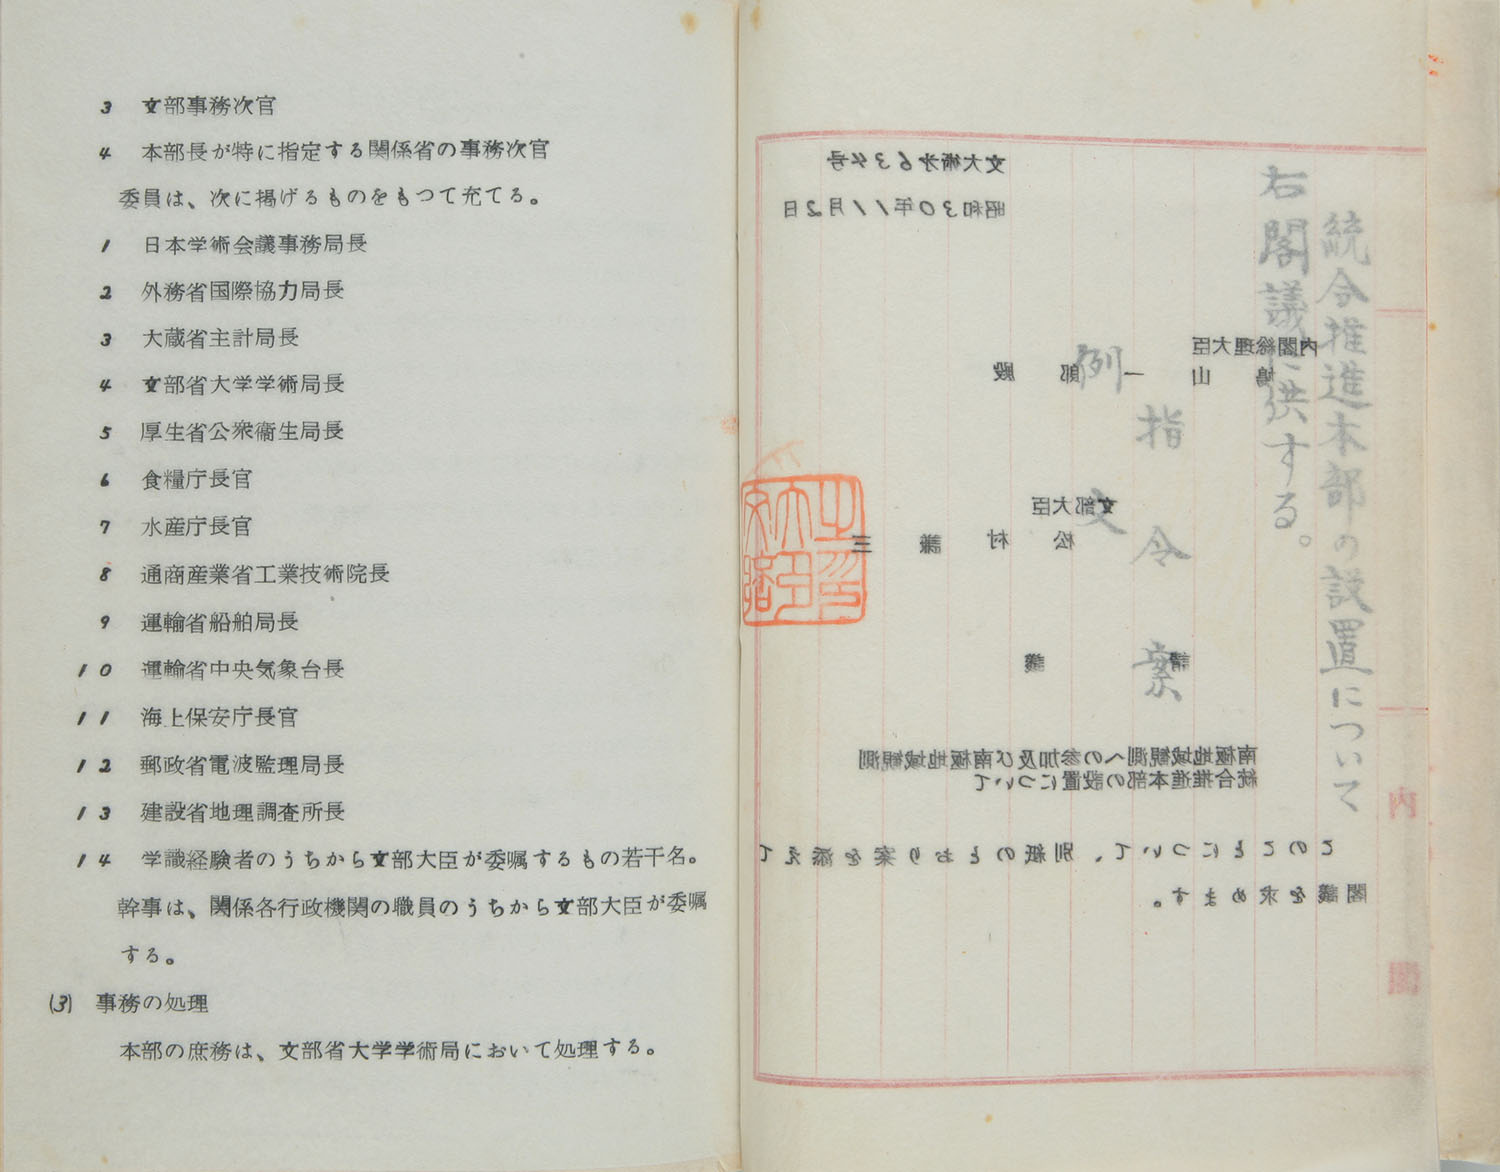 3 文部事務次官
4 本部長が特に指定する関係省の事務次官
委員は、次に掲げるものをもつて充てる。
1 日本学術会議事務局長
2 外務省国際協力局長
3 大蔵省主計局長
4 文部省大学学術局長
5 厚生省公衆衞生局長
6 食糧庁長官
7 水産庁長官
8 通商産業省工業技術院長
9 運輸省船舶局長
10 運輸省中央気象台長
11 海上保安庁長官
12 郵政省電波監理局長
13 建設省地理調査所長
14 学識経験者のうちから文部大臣が委嘱するもの若干名。
幹事は、関係各行政機関の職員のうちから文部大臣が委嘱
する。
(3) 事務の処理
本部の庶務は、文部省大学学術局において処理する。
統合推進本部の設置について
右閣議に供する。
指令案
例文
文大術才634号
昭和30年11月2日
内閣総理大臣
鳩山一郎殿
文部大臣
松村謙三
請議
南極地域観測への参加及び南極地域観測
統合推進本部の設置について
このことについて、別紙のとおり案を添えて
閣議を求めます。
内閣